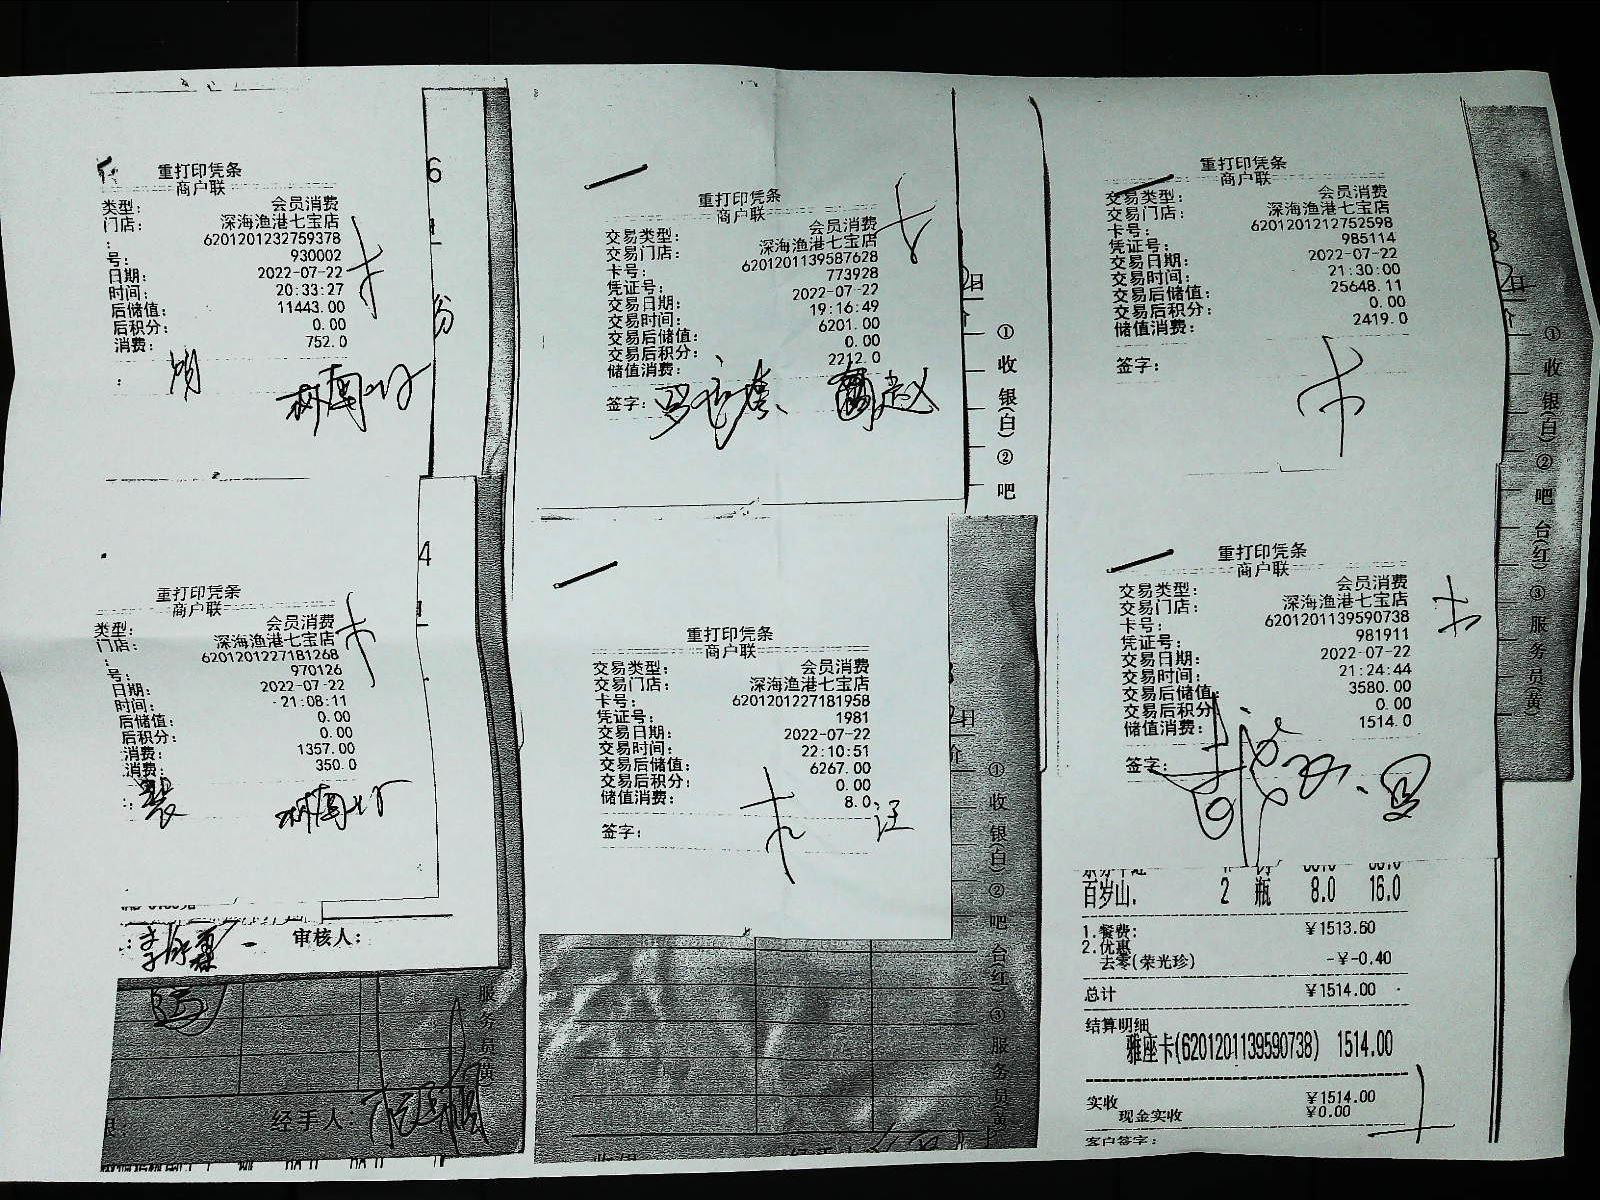 重打印凭条
商户联
类型: 会员消费
门店: 深海渔港七宝店
: 6201201232759378
号: 930002
日期: 2022-07-22
时间: 20:33:27
后储值: 11443.00
后积分: 0.00
消费: 752.0
6
份
重打印凭条
商户联
交易类型: 会员消费
交易门店: 深海渔港七宝店
卡号: 6201201139587628
凭证号: 773928
交易日期: 2022-07-22
交易时间: 19:16:49
交易后储值: 6201.00
交易后积分: 0.00
储值消费: 2212.0
签字:
日
①收银(白)②吧
重打印凭条
商户联
交易类型: 会员消费
交易门店: 深海渔港七宝店
卡号: 6201201212752598
凭证号: 985114
交易日期: 2022-07-22
交易时间: 21:30:00
交易后储值: 25648.11
交易后积分: 0.00
储值消费: 2419.0
签字:
①收银(白)②吧台(红)③服务员(黄)
重打印凭条
商户联
类型: 会员消费
门店: 深海渔港七宝店
: 6201201227181268
号: 970126
日期: 2022-07-22
时间: 21:08:11
后储值: 0.00
后积分: 0.00
消费: 1357.00
消费: 350.0
4
审核人:
服务员(黄)
经手人:
重打印凭条
商户联
交易类型: 会员消费
交易门店: 深海渔港七宝店
卡号: 6201201227181958
凭证号: 1981
交易日期: 2022-07-22
交易时间: 22:10:51
交易后储值: 6267.00
交易后积分: 0.00
储值消费: 8.0
签字: 汪
日
价
①收银(白)②吧台(红)③服务员(黄)
重打印凭条
商户联
交易类型: 会员消费
交易门店: 深海渔港七宝店
卡号: 6201201139590738
凭证号: 981911
交易日期: 2022-07-22
交易时间: 21:24:44
交易后储值: 3580.00
交易后积分: 0.00
储值消费: 1514.0
签字:
百岁山. 2 瓶 8.0 16.0
1.餐费: ¥1513.60
2.优惠
去零(荣光珍) -¥-0.40
总计 ¥1514.00
结算明细
雅座卡(6201201139590738) 1514.00
实收 ¥1514.00
现金实收 ¥0.00
客户签字: